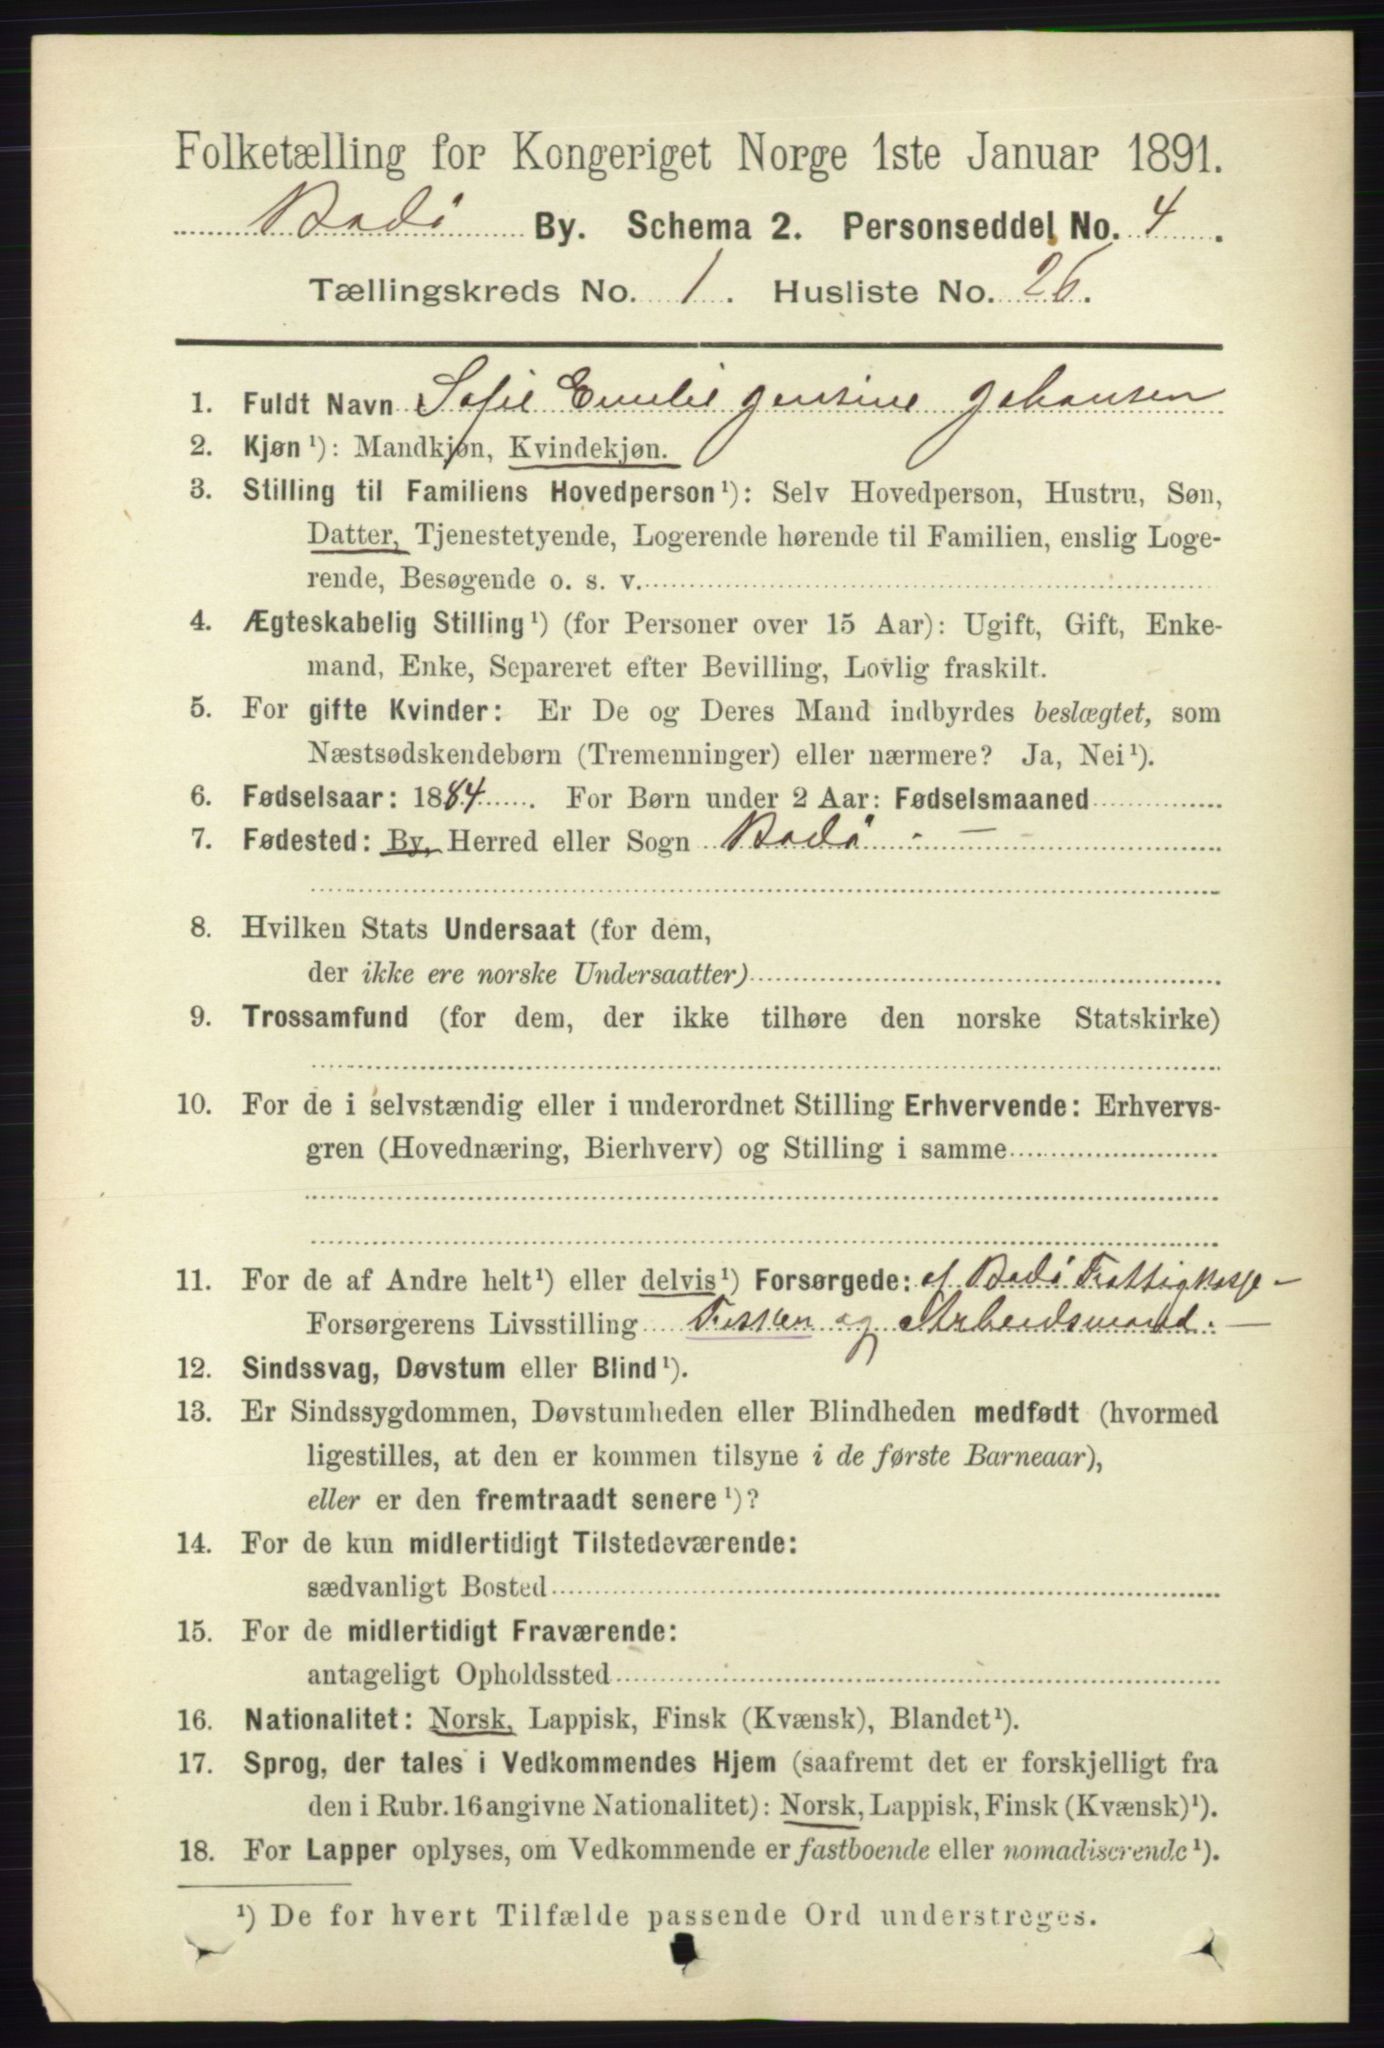 Folketælling for Kongeriget Norge 1ste Januar 1891.
Bodø By. Schema 2. Personseddel No. 4.
Tællingskreds No. 1. Husliste No. 26.
1. Fuldt Navn Sofie Emilie Jensine Johansen
2. Kjøn ¹): Mandkjøn, Kvindekjøn.
3. Stilling til Familiens Hovedperson ¹): Selv Hovedperson, Hustru, Søn,
Datter, Tjenestetyende, Logerende hørende til Familien, enslig Loge-
rende, Besøgende o. s. v.
4. Ægteskabelig Stilling ¹) (for Personer over 15 Aar): Ugift, Gift, Enke-
mand, Enke, Separeret efter Bevilling, Lovlig fraskilt.
5. For gifte Kvinder: Er De og Deres Mand indbyrdes beslægtet, som
Næstsødskendebørn (Tremenninger) eller nærmere? Ja, Nei ¹).
6. Fødselsaar: 1884. For Børn under 2 Aar: Fødselsmaaned
7. Fødested: By, Herred eller Sogn Bodø
8. Hvilken Stats Undersaat (for dem,
der ikke ere norske Undersaatter)
9. Trossamfund (for dem, der ikke tilhøre den norske Statskirke)
10. For de i selvstændig eller i underordnet Stilling Erhvervende: Erhvervs-
gren (Hovednæring, Bierhverv) og Stilling i samme
11. For de af Andre helt ¹) eller delvis ¹) Forsørgede: af Bodø Fattigkasse –
Forsørgerens Livsstilling Fisker og Arbeidsmand. –
12. Sindssvag, Døvstum eller Blind ¹).
13. Er Sindssygdommen, Døvstumheden eller Blindheden medfødt (hvormed
ligestilles, at den er kommen tilsyne i de første Barneaar),
eller er den fremtraadt senere ¹)?
14. For de kun midlertidigt Tilstedeværende:
sædvanligt Bosted
15. For de midlertidigt Fraværende:
antageligt Opholdssted
16. Nationalitet: Norsk, Lappisk, Finsk (Kvænsk), Blandet ¹).
17. Sprog, der tales i Vedkommendes Hjem (saafremt det er forskjelligt fra
den i Rubr. 16 angivne Nationalitet): Norsk, Lappisk, Finsk (Kvænsk) ¹).
18. For Lapper oplyses, om Vedkommende er fastboende eller nomadiserende ¹).
¹) De for hvert Tilfælde passende Ord understreges.